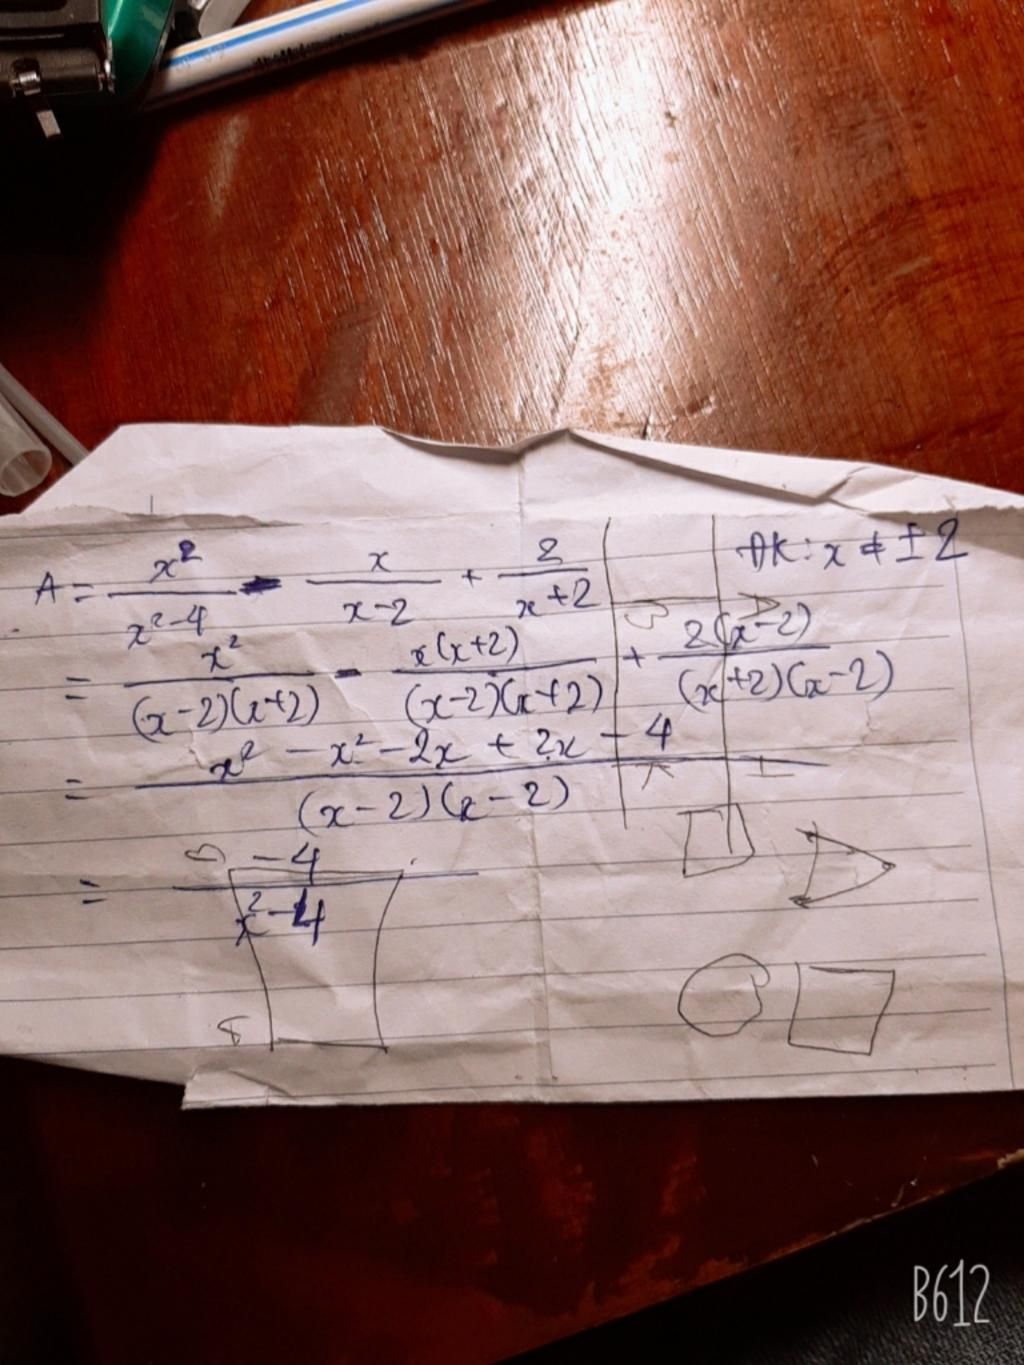 A = x²/(x²-4) - x/(x-2) + 2/(x+2) ĐK: x ≠ ±2
= x²/((x-2)(x+2)) - x(x+2)/((x-2)(x+2)) + 2(x-2)/((x+2)(x-2))
= (x² - x² - 2x + 2x - 4)/((x-2)(x-2))
= -4/(x²-4)
B612